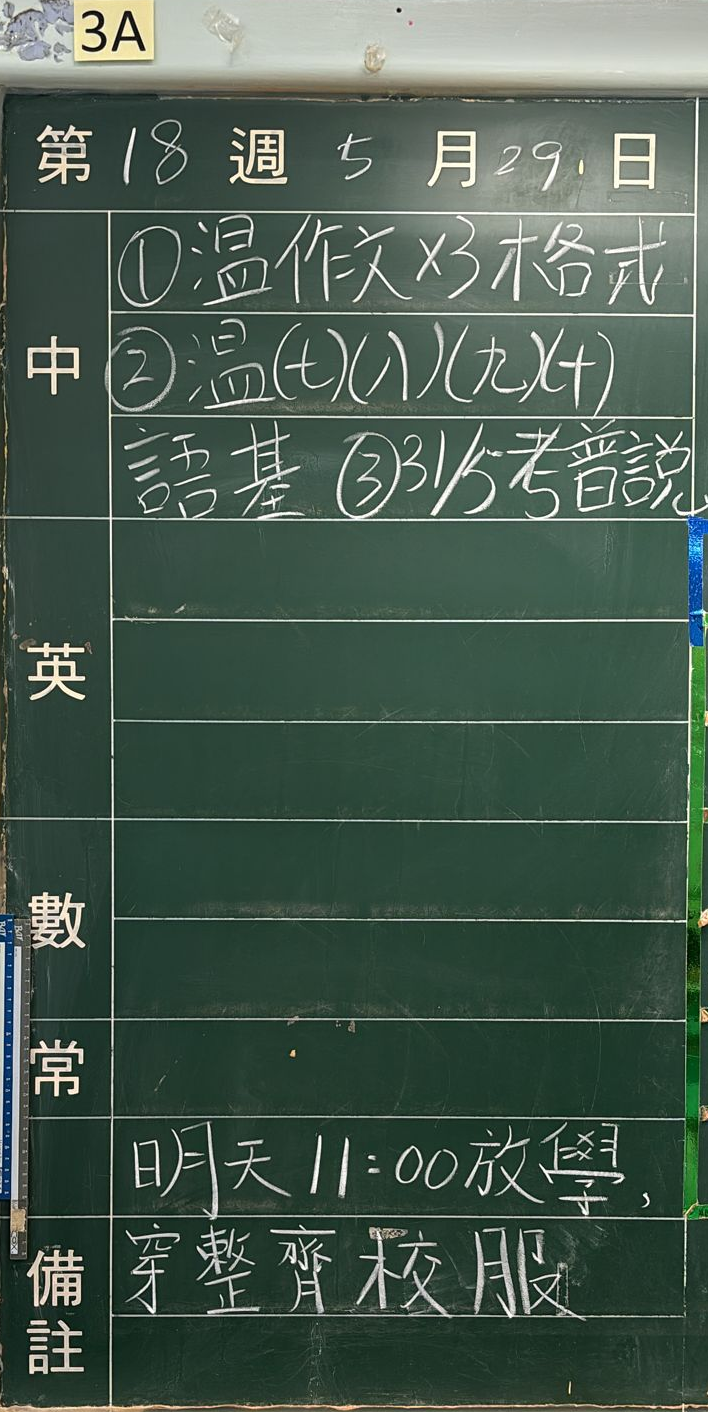 3A
第18週5月29日
中
①温作文×3格式
②温(七)(八)(九)(十)
語基 ③31/5考普説
英
數
常
明天11:00放學,
備註
穿整齊校服